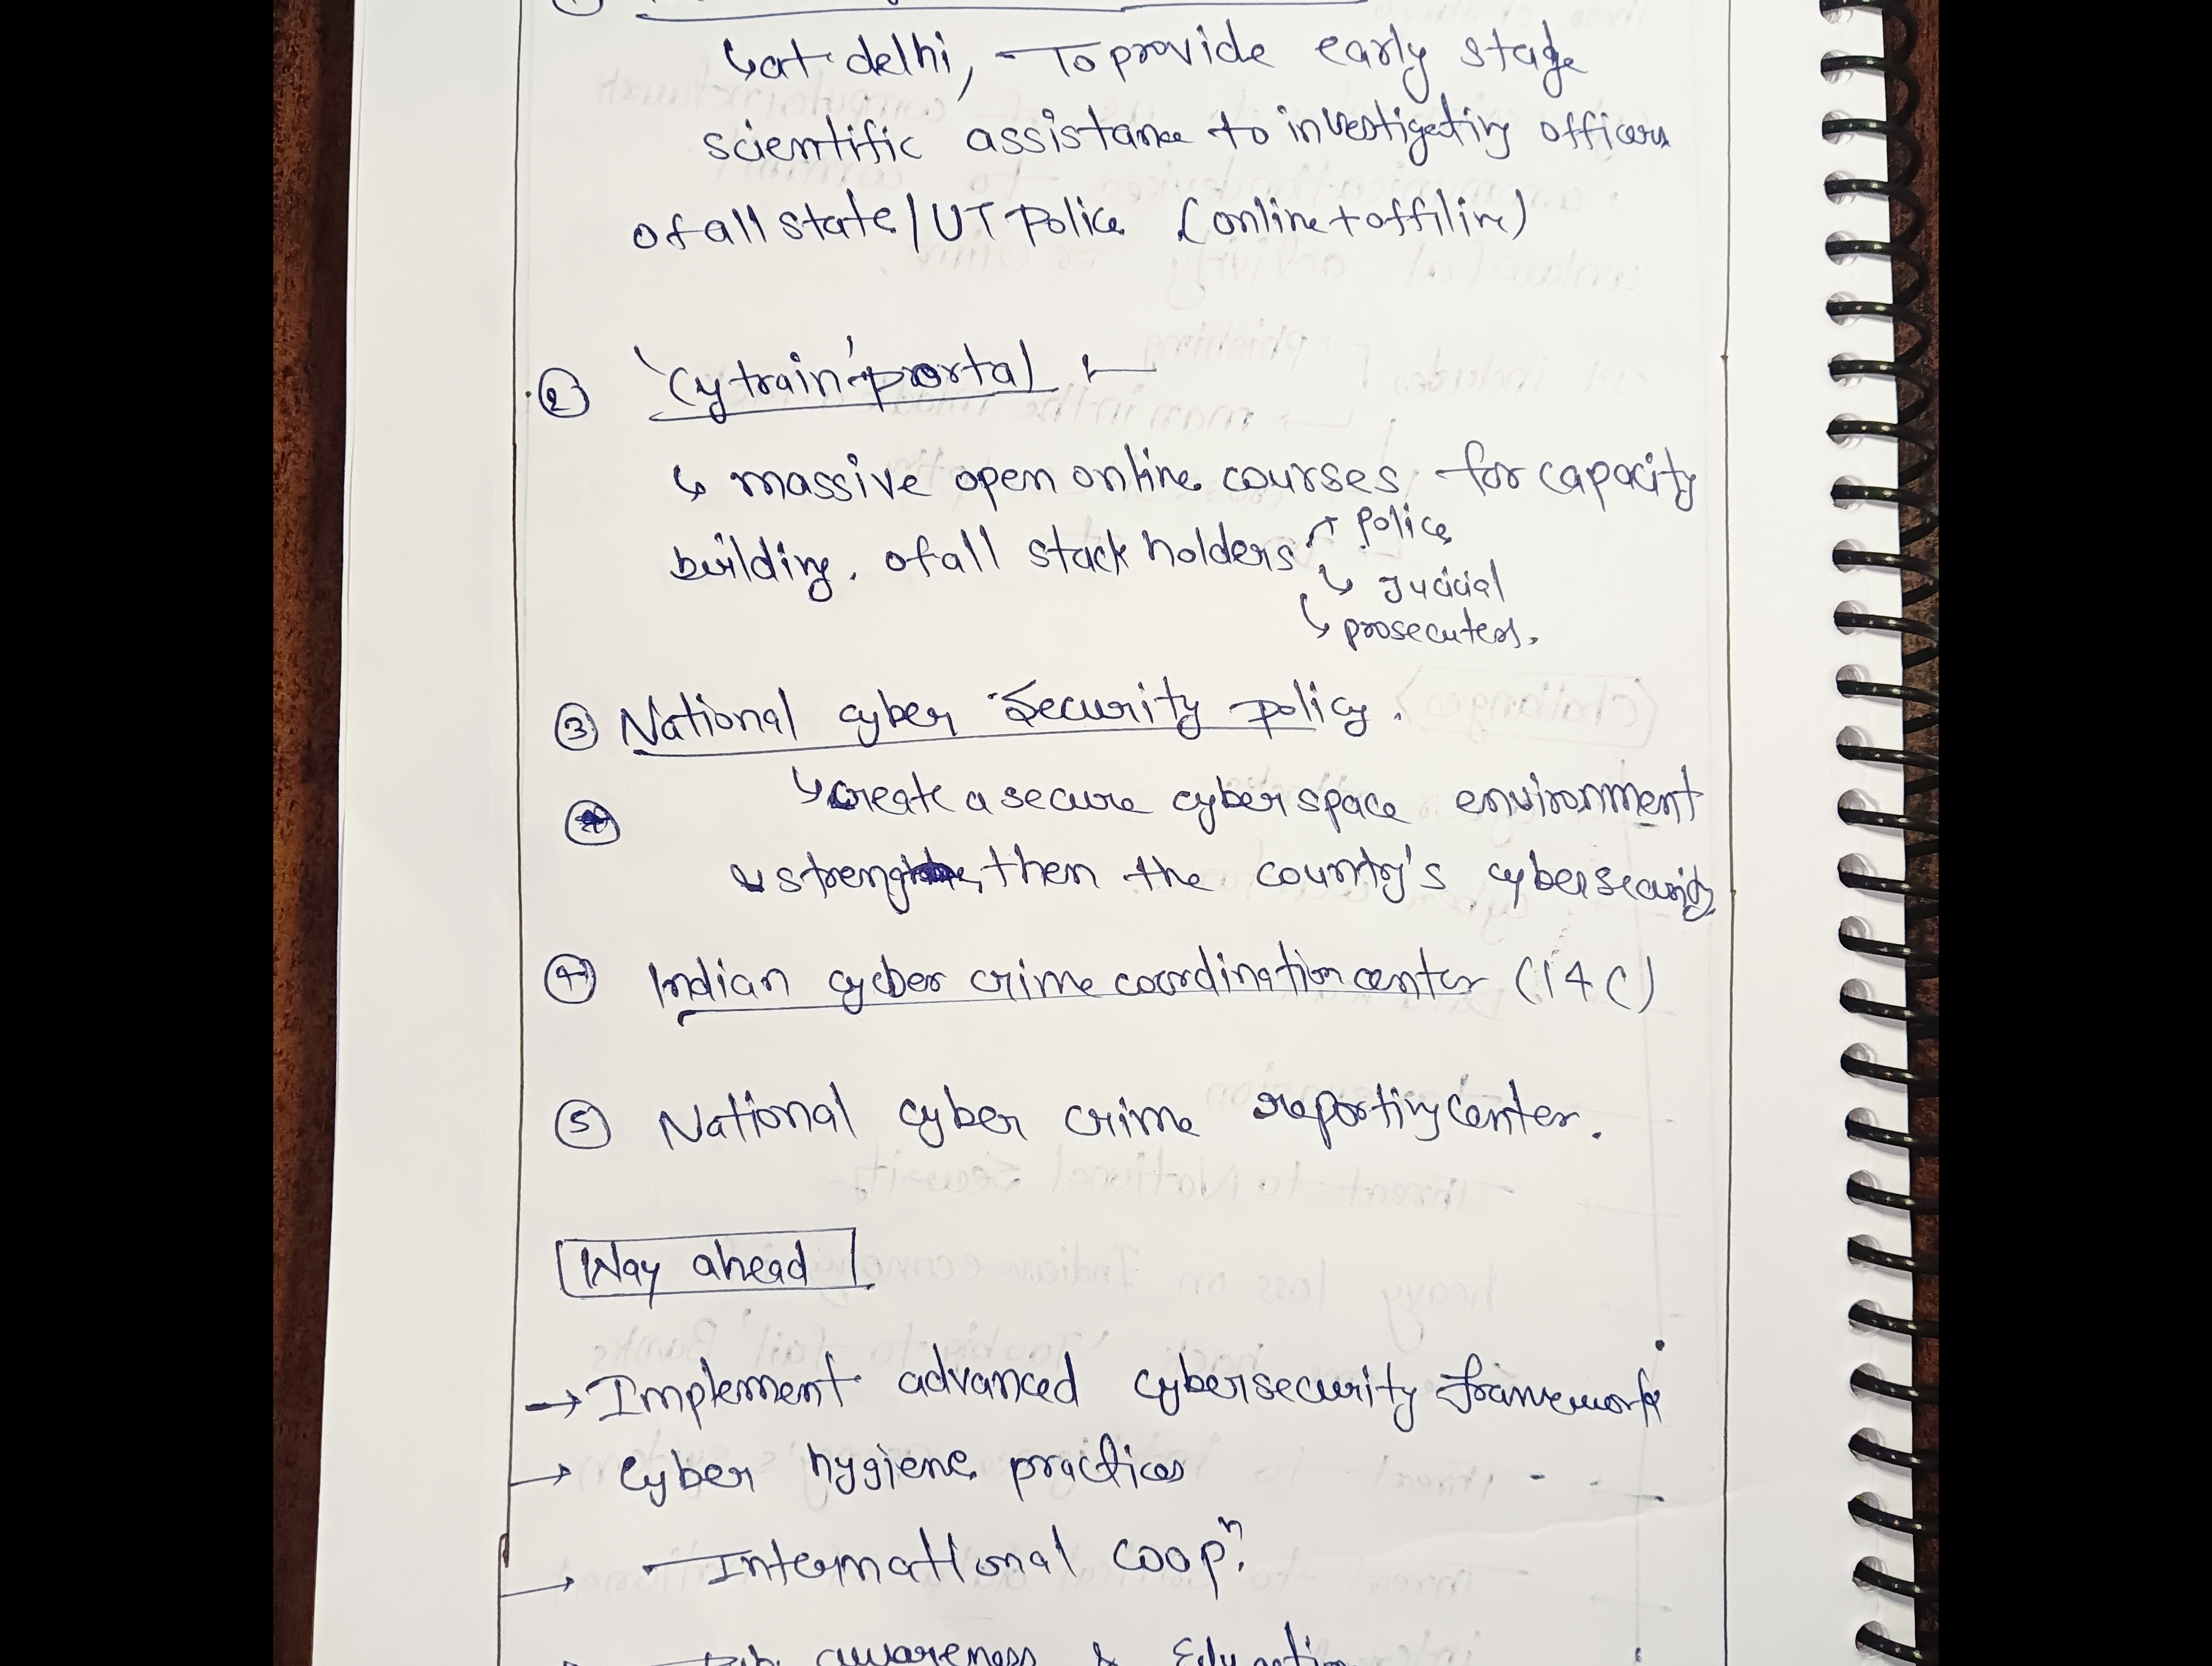 ↳ at delhi, - To provide early stage
scientific assistance to investigating officers
of all state/UT Police (online + offiline)
② 'Cytrain' portal :-
↳ massive open online courses for capacity
building. of all stack holders → Police
↳ Judicial
↳ prosecuters.
③ National cyber Security policy.
↳ create a secure cyber space environment
↳ strengthen the country's cybersecurity
④ Indian cycber crime coordination center (I4C)
⑤ National cyber crime reporting center.
Way ahead
→ Implement advanced cybersecurity framework
→ Cyber hygiene practices
→ International coopⁿ.
awareness & Education